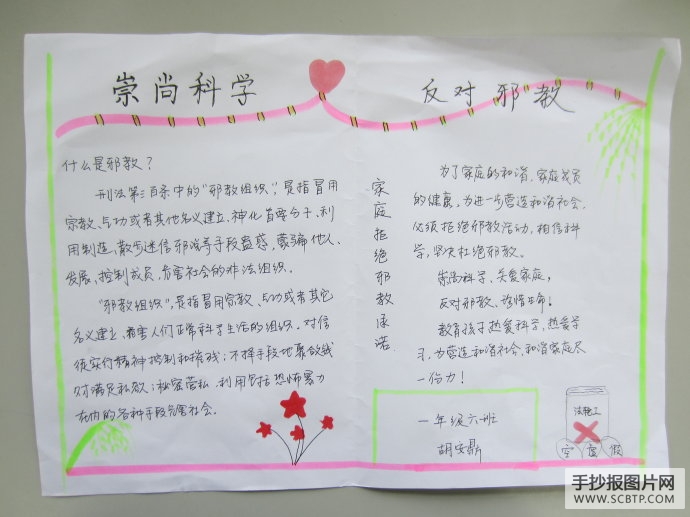 崇尚科学
反对邪教
什么是邪教？
刑法第三百条中的"邪教组织"，是指冒用
宗教、气功或者其他名义建立、神化首要分子，利
用制造、散步迷信邪说等手段蛊惑、蒙骗他人、
发展、控制成员，危害社会的非法组织。
"邪教组织"，是指冒用宗教、气功或者其它
名义建立、损害人们正常科学生活的组织。对信
徒实行精神控制和摧残；不择手段地聚敛钱
财满足私欲；秘密营私、利用包括恐怖暴力
在内的各种手段危害社会。
家庭拒绝邪教承诺
为了家庭的和谐、家庭成员
的健康，为进一步营造和谐社会，
必须拒绝邪教活动，相信科
学，坚决杜绝邪教。
崇尚科学、关爱家庭，
反对邪教、珍惜生命！
教育孩子热爱科学，热爱学
习，为营造和谐社会、和谐家庭尽
一份力！
一年级六班
胡安鼎
法轮工
空 虚 假
手抄报图片网
WWW.SCBTP.COM